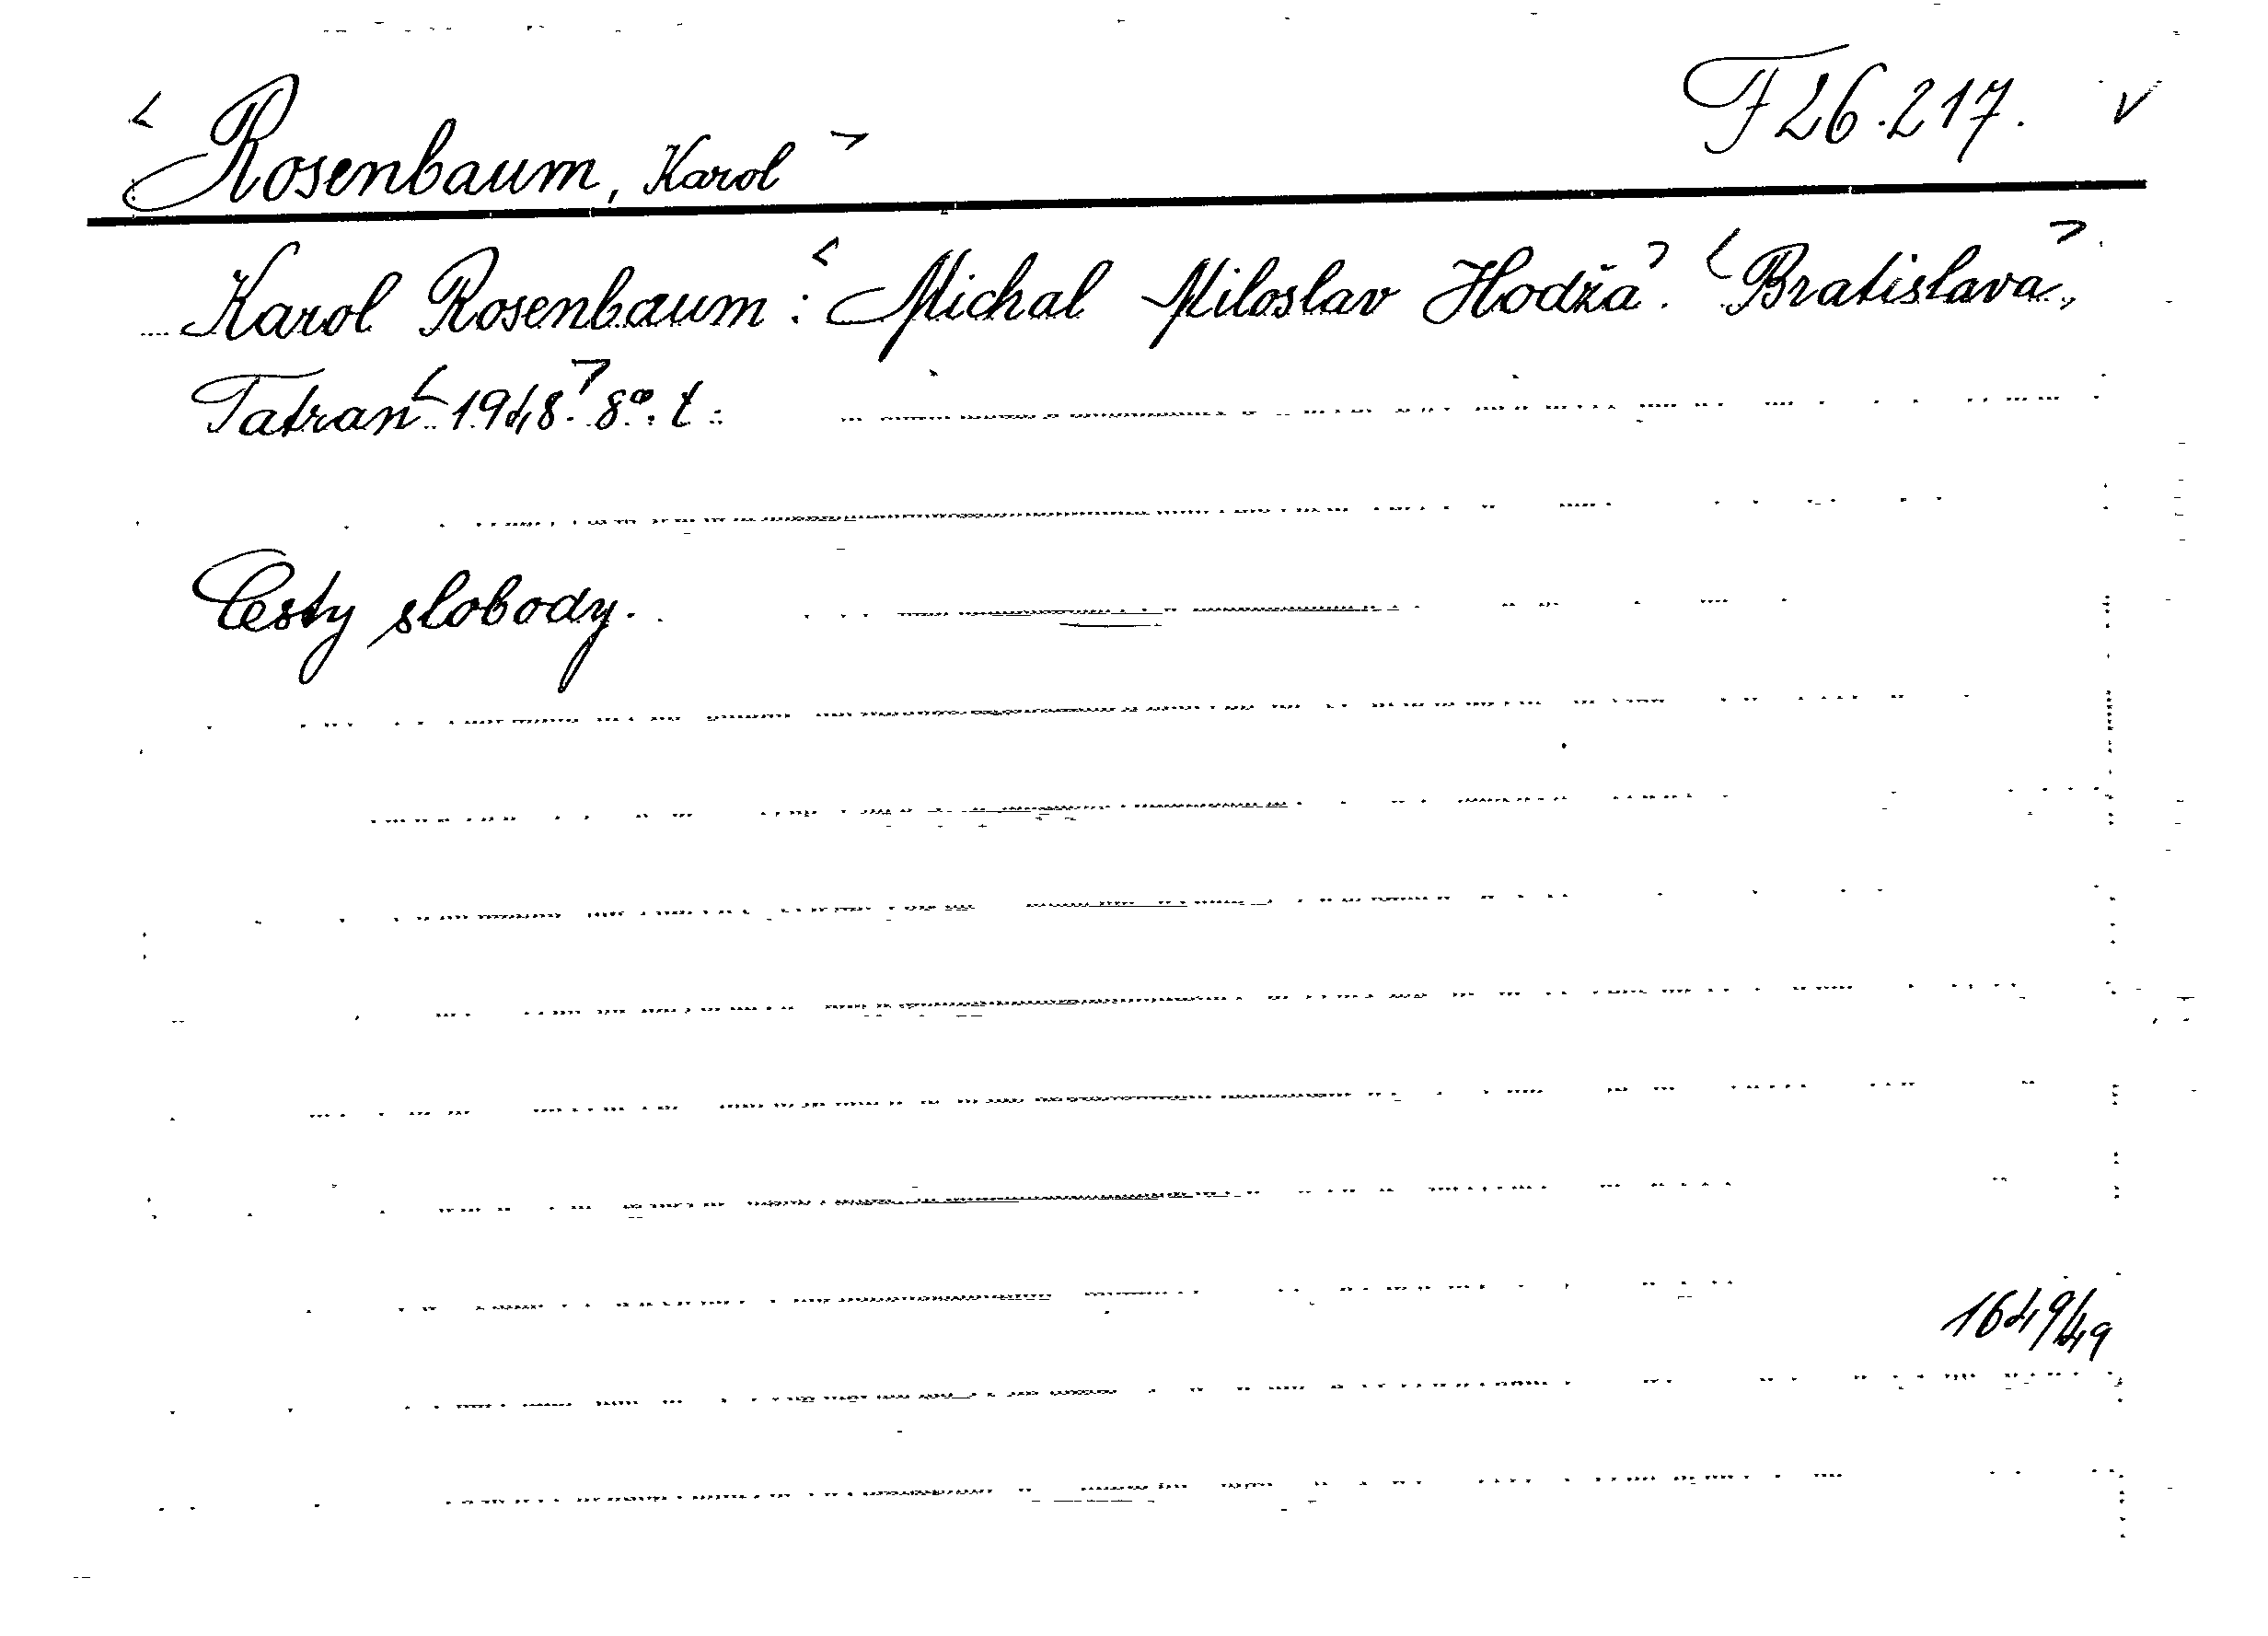 <Rosenbaum, Karol> F 26.217. v
Karol Rosenbaum: <Michal Miloslav Hodža>. <Bratislava>,
Tatran <1948.> 8°. t.
Cesty slobody.
1649/49